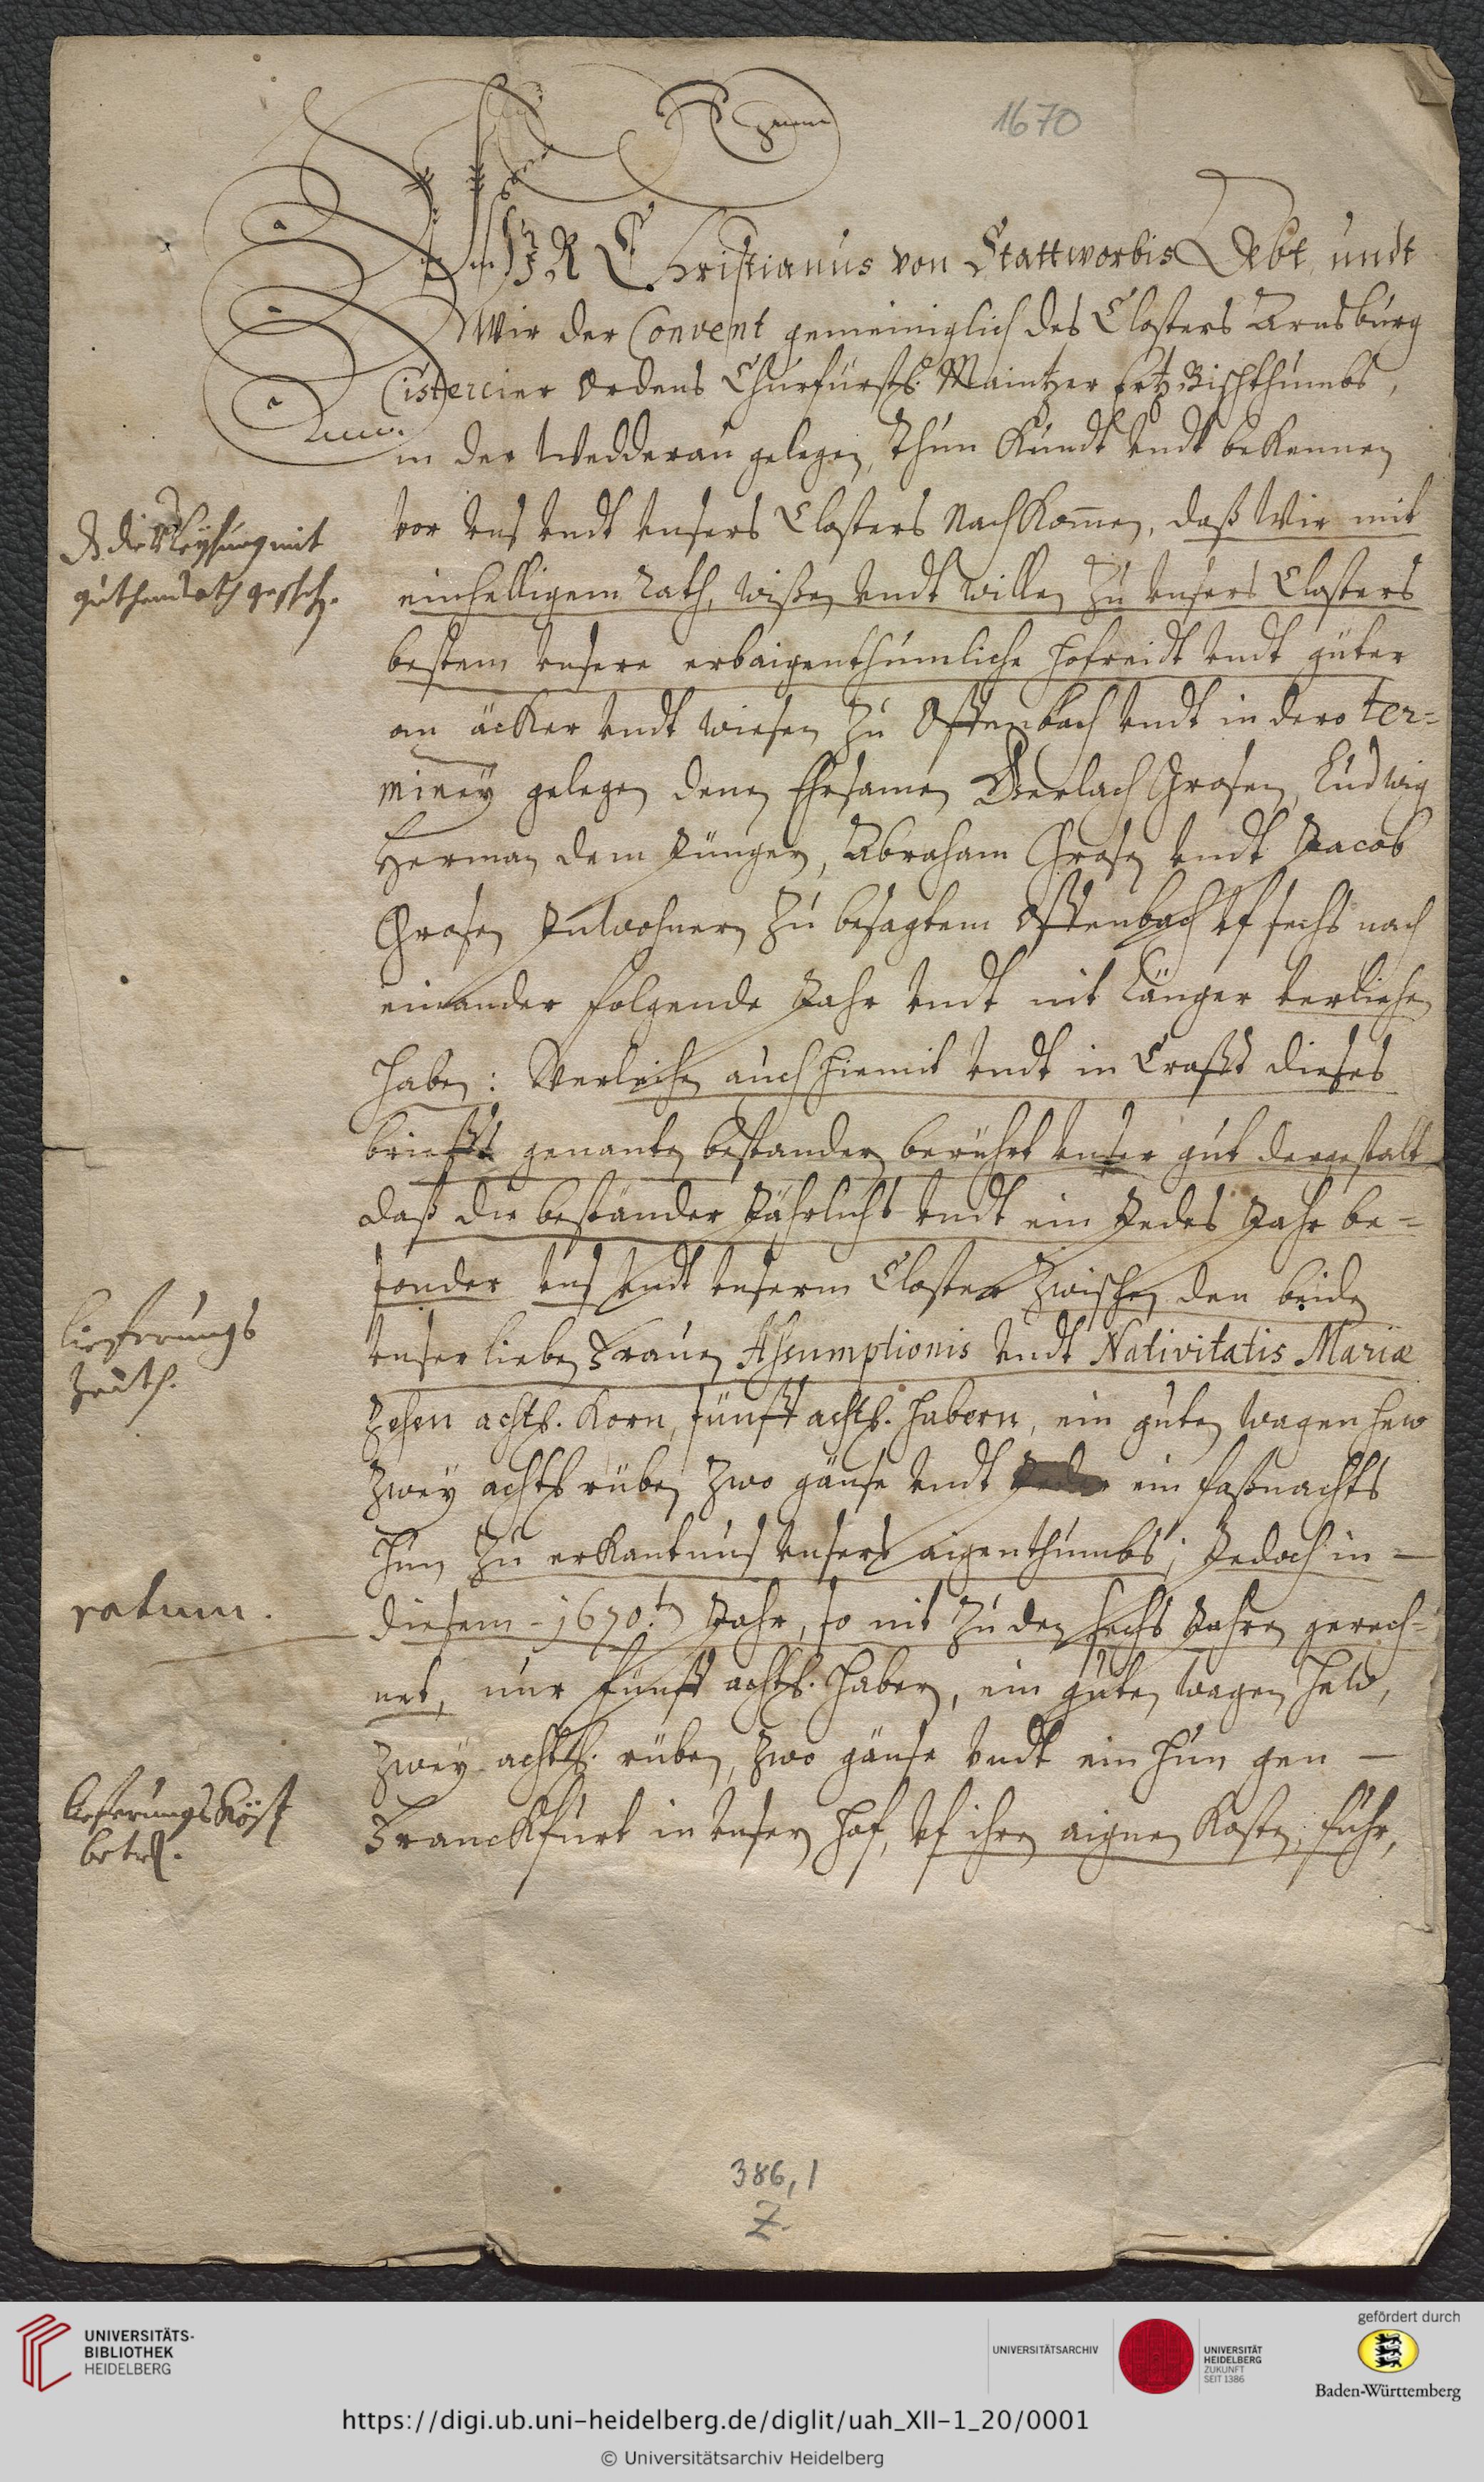 1670
WIR Christianus von Stattworbis Abt, undt
Wir der Convent gemeiniglich des Closters Arnsburg
Cistercier Ordens Churfürstl. Maintzer Ertz Bischthumbs,
in der Wedderau gelegen, Thun Kundt vndt bekennen
vor vns vndt vnsers Closters Nachkom̅en, daß Wir mit
einhelligem rath, wißen vndt willen zu vnsers Closters
bestem vnsere erbaigenthumliche hofreidt vndt güter
an äcker vndt wiesen zu Offenbach vndt in dero ter=
miney gelegen denen Ehrsamen Gerlach Grosen, Ludwig
Herman dem Jüngern, Abraham Grosen vndt Jacob
Grosen Inwohnern zu besagtem Offenbach vf sechs nach
einander folgende Jahr vndt nit länger verliehen
haben: Verleihen auch hiemit vndt in Crafft dieses
brieffs genanten bestandern berührt vnser gut dergestalt
daß die beständer Jährlichs vndt ein Jedes Jahr be=
sonder vns vndt vnserm Closter zwischen den beiden
vnser lieben Frauen Assumptionis vndt Nativitatis Mariæ
zehen achtl. Korn, fünff achtl. habern, ein guten wagen hew
zwey achtl rüben zwo gänse vndt ein faßnachts
hun zu erkantnus vnsers aigenthumbs; Jedoch in –
diesem - 1670.tn Jahr, so nit zu den sechs Jahren gerech=
net, nur fünff achtl. habern, ein guten wagen hew,
zwey achtl. rüben, zwo gänse vndt ein hun gen –
Franckfurt in vnsern hof, vf ihren aignen Kosten, fuhr,
die Verleyhung mit
guthem Rath geschehen.
lieferungs
Zeith.
ratum.
lieferungs Köst
betrl.
386,1
Z.
UNIVERSITÄTS-
BIBLIOTHEK
HEIDELBERG
UNIVERSITÄTSARCHIV
UNIVERSITÄT
HEIDELBERG
ZUKUNFT
SEIT 1386
gefördert durch
Baden-Württemberg
https://digi.ub.uni-heidelberg.de/diglit/uah_XII-1_20/0001
© Universitätsarchiv Heidelberg